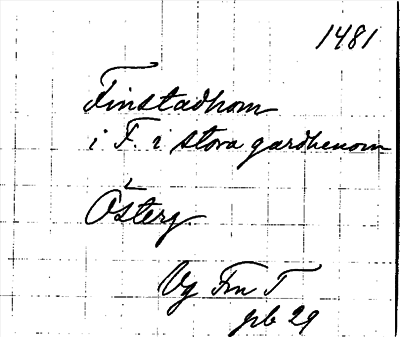 1481
Finstadhom
i F. i stora gardhenom
Österg.
Vg Fn T
pb 29